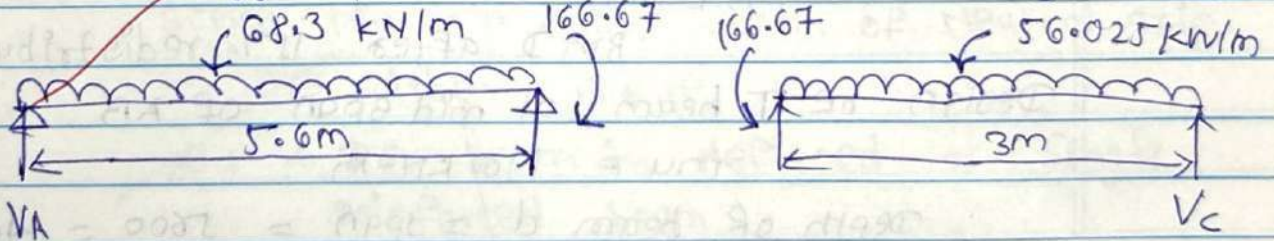 68.3 kN/m 166.67 166.67 56.025 kN/m
5.6m 3m
VA VC